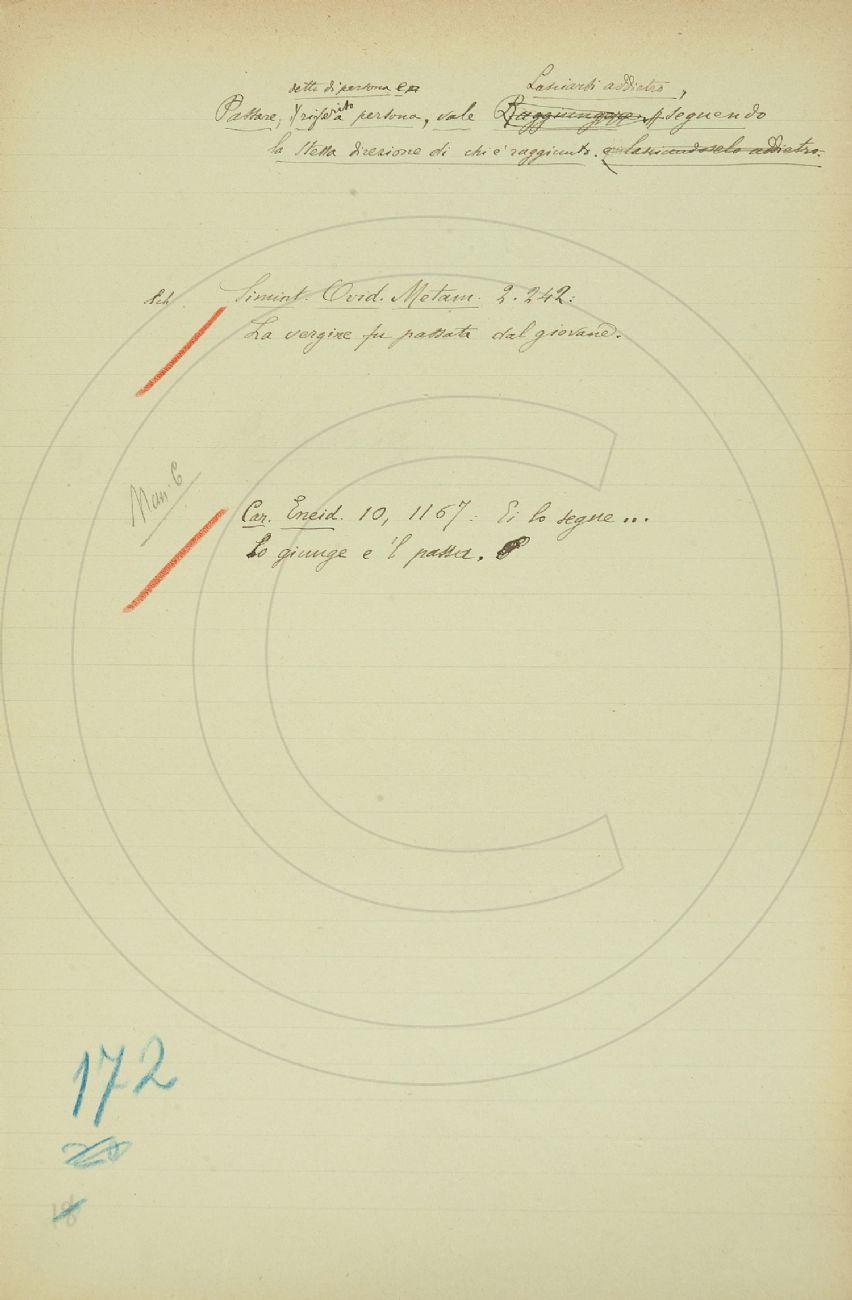 detto di persona e
Lasciarsi addietro,
Passare, riferito a persona, vale Raggiungere seguendo
la stessa direzione di chi è raggiunto. e lasciandoselo addietro.
Simint. Ovid. Metam. 2. 242:
La vergine fu passata dal giovane.
Man. C
Car. Eneid. 10, 1167: Ei lo segue...
Lo giunge e 'l passa.
172
18